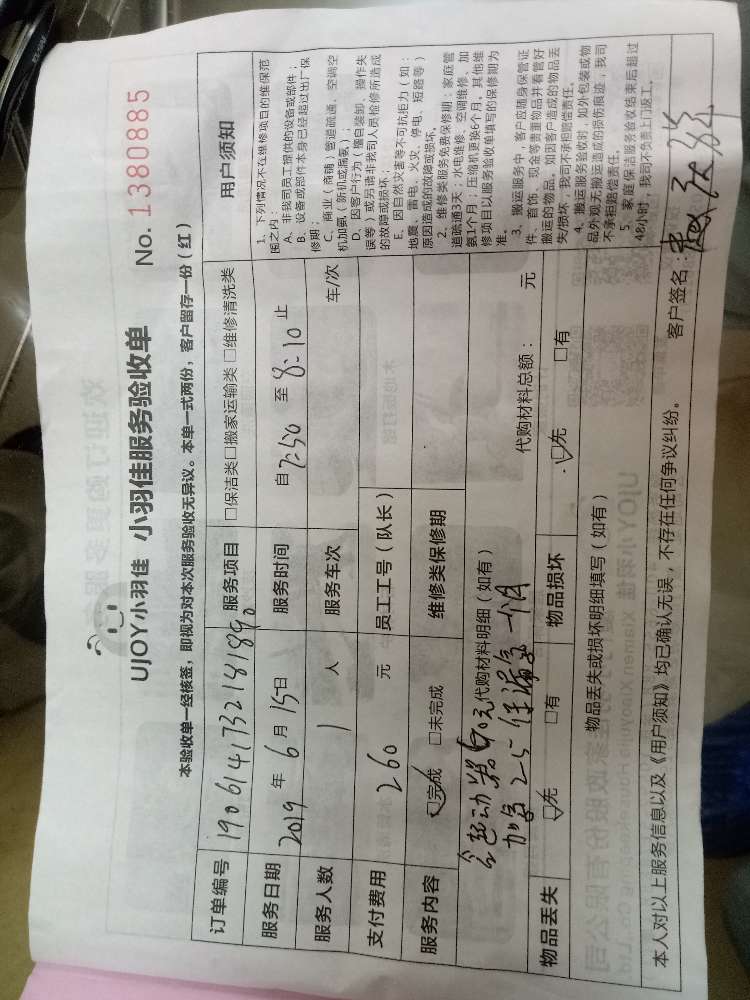 UJOY小羽佳 小羽佳服务验收单 No. 1380885
本验收单一经核签，即视为对本次服务验收无异议。本单一式两份，客户留存一份（红）
订单编号 190614173218189
服务项目 □保洁类□搬家运输类 □维修清洗类
服务日期 2019 年 6 月 15 日
服务时间 自 7:50 至 8:10 止
服务人数 1 人
服务车次 车/次
支付费用 260 元
员工工号（队长）
服务内容 ☑完成 □未完成
维修类保修期
代购材料明细（如有）
代购材料总额： 元
加氟 25 保漏氟 一个月
物品丢失 ☑无 □有
物品损坏 ☑无 □有
物品丢失或损坏明细填写（如有）
本人对以上服务信息以及《用户须知》均已确认无误，不存在任何争议纠纷。 客户签名：
用户须知
1、下列情况不在维修项目的维保范
围之内：
A、非我司员工提供的设备或部件；
B、设备或部件本身已经超过出厂保
修期；
C、商业（商铺）管道疏通、空调空
机加氨（新机或漏氨）；
D、因客户行为（擅自装卸、操作失
误等）或另请非我司人员检修所造成
的故障或损坏；
E、因自然灾害等不可抗拒力（如：
地震、雷电、火灾、停电、短路等）
原因造成的故障或损坏。
2、维修类服务免费保修期：家庭管
道疏通3天；水电维修、空调维修、加
氨1个月；压缩机更换6个月。其他维
修项目以服务验收单填写的保修期为
准。
3、搬运服务中，客户应随身保管证
件、首饰、现金等贵重物品并看管好
搬运的物品。如因客户造成的物品丢
失/损坏，我司不承担赔偿责任。
4、搬运服务验收时，如外包装或物
品外观无搬运造成的损伤痕迹，我司
不承担赔偿责任。
5、家庭保洁服务验收结束后超过
48小时，我司不负责上门返工。